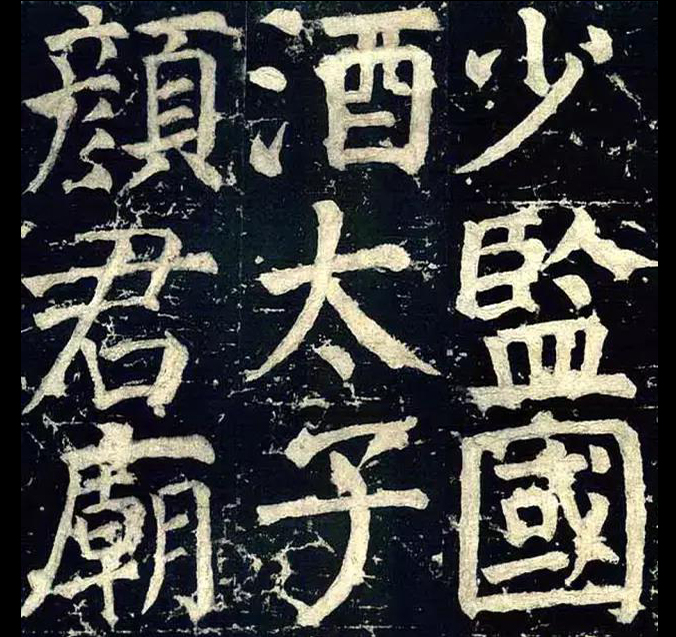 少監國
酒太子
顏君廟